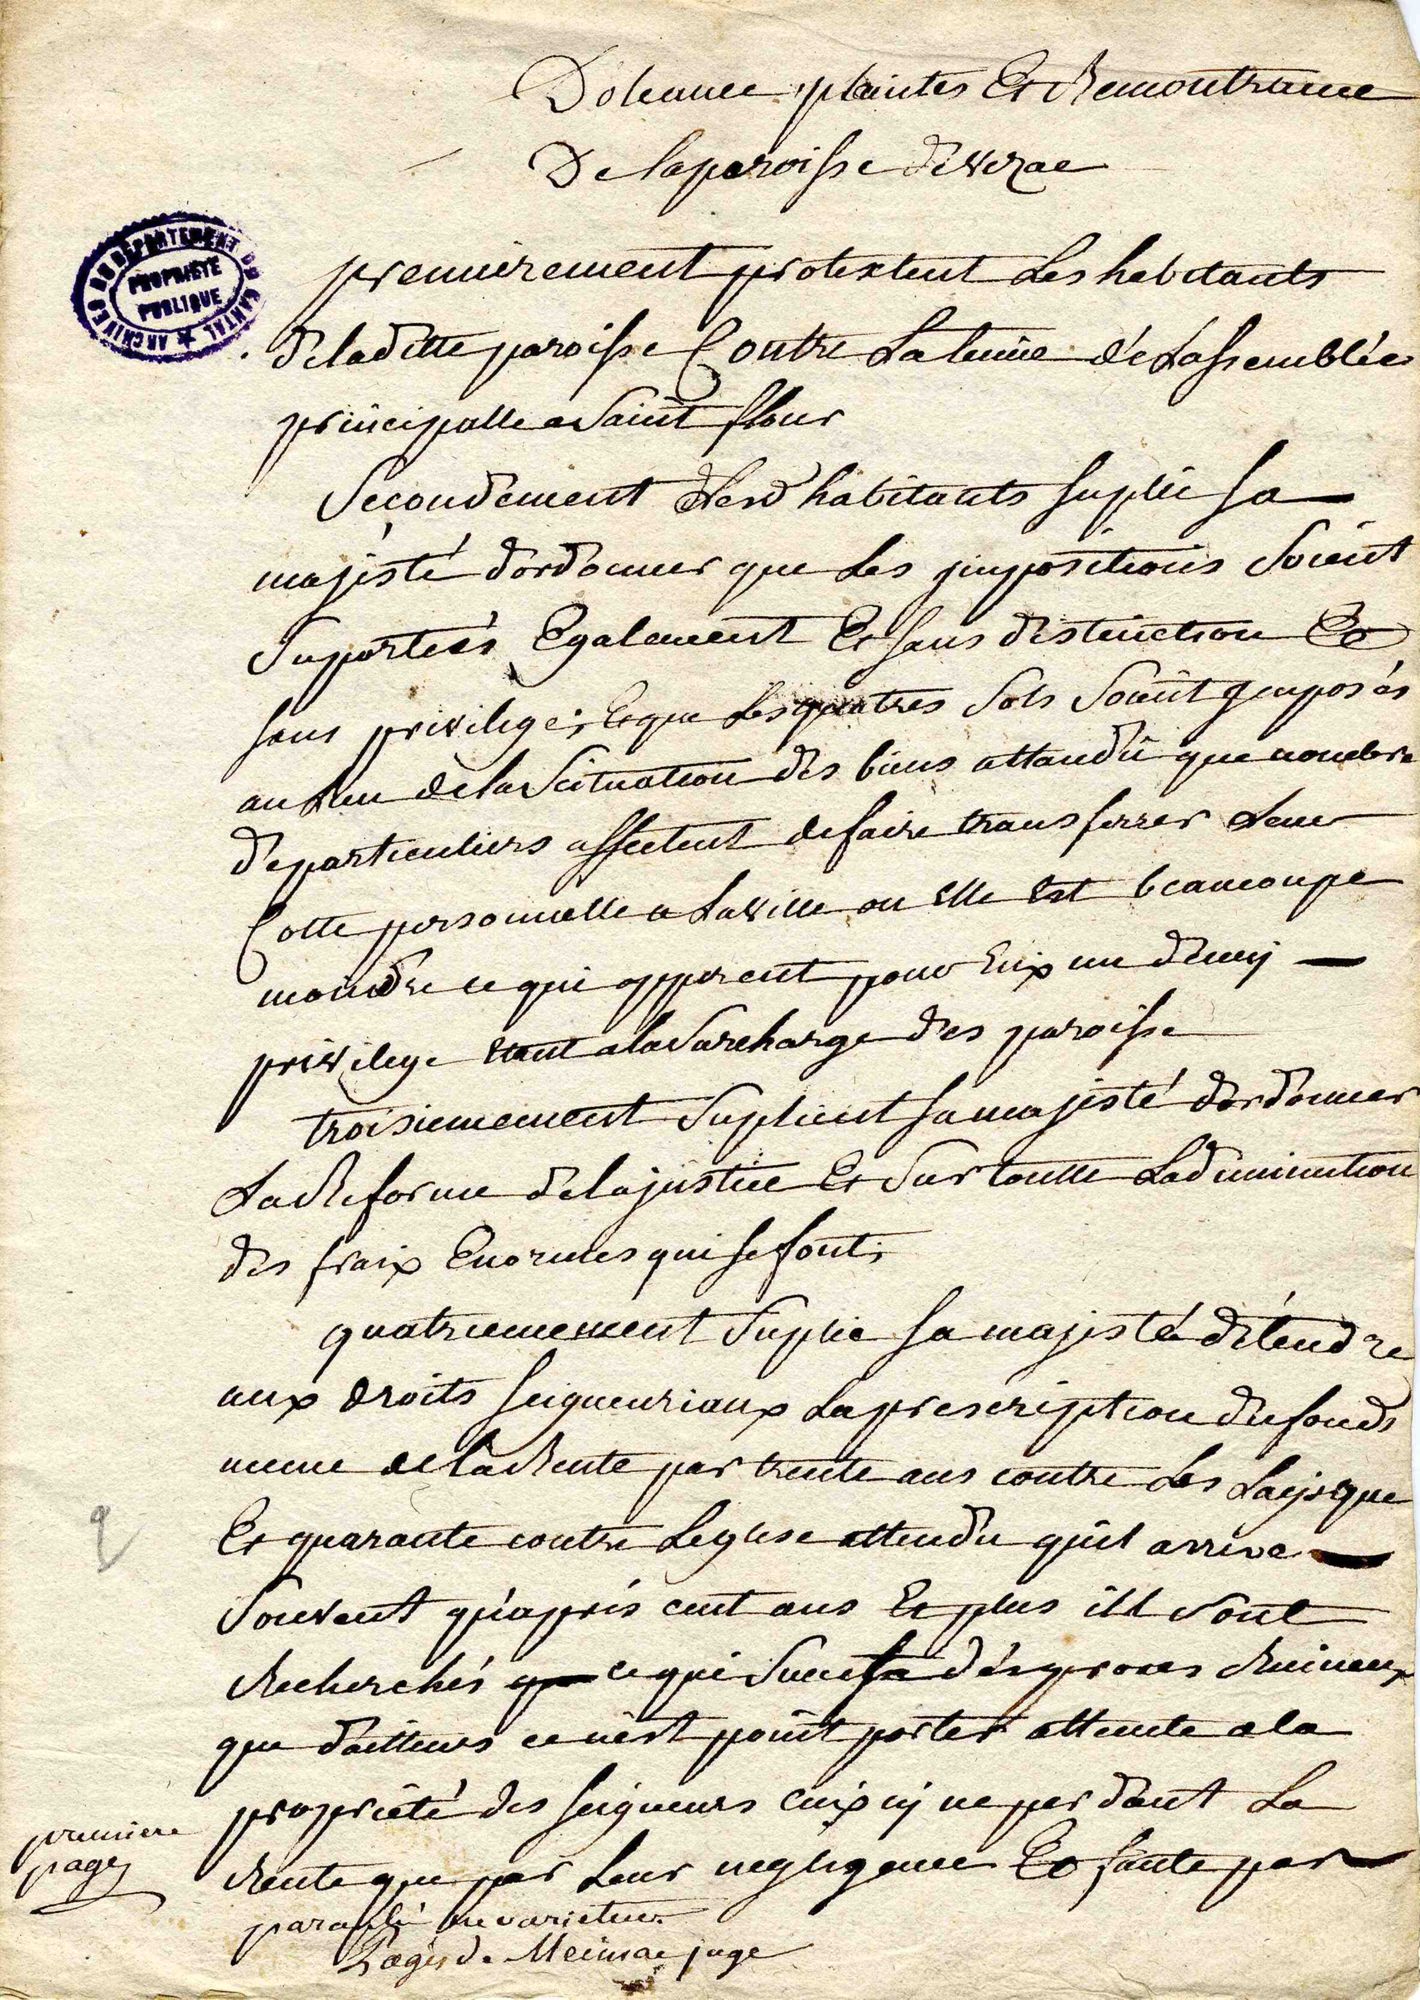 Doleance plaintes Et Remontrance
De la paroisse de vezac
ARCHIVES DU DEPARTEMENT DU CANTAL
PROPRIETE
PUBLIQUE
premierement protextent Les habitants
de la ditte paroisse Contre La tenüe de Lassemblée
principalle a Saint flour
Secondement Lesd habitants suplie sa
majesté dordonner que Les jmpositions Soient
Suportées Egalement Et sans distinction Et
sans privilege; Et que Les quatres Sols Soient jmposés
au Lieu de la Scituation des biens attandu que nombre
de particuliers affectent de faire transferrer Leur
Cotte personnelle a La ville ou Elle Est beaucoupe
moindre ce qui opperent pour Eux un demy
privilege tant a la Surcharge des paroisse
troisiemement Suplient sa majesté dordonner
La Reforme de la justice Et Sur toutte La diminution
des fraix Enormes qui se font;
quatriemement Suplie sa majesté détendre
aux droits seigneuriaux La prescription du fonds
meme de la Rente par trente ans contre Les Layique
Et quarante contre Leglise attendu qu'il arrive
Souvent qu'aprés cent ans Et plus ill sont
Recherchés ce qui Sucite des proces Ruineux
que dailleurs ce n'est point porter atteinte a la
proprieté des seigneurs Ceux cy ne perdant La
Rente que par Leur negligence Et faute par
premiere
page
paraphé ne varietur
Pages de Meimac juge
2